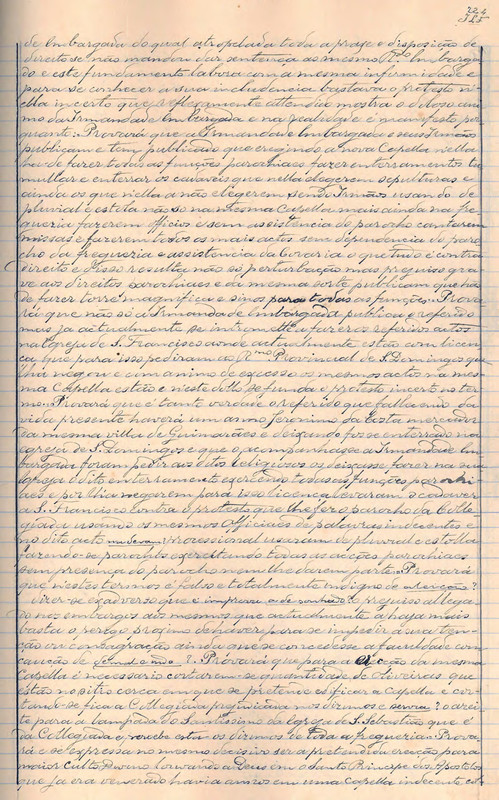 de Embargada do qual atropelada toda a praxe e disposição de
direito se não mandou dar sentença ao mesmo Rdo Embargan
do e este fundamento labora com a mesma infirmidade e
para se conhecer a sua includencia bastava o protesto n'
ella incerto que reflexamente attendido mostra o doloso ani
mo da Irmandade Embargada e na realidade é manifesto por
quanto: Provará que a Irmandade Embargada e seus Irmãos
publicam e tem publicado que erigindo a nova Capella n'ella
hão de fazer todas as funções parochiaes fazer enterramentos tu
mullar e enterrar os cadaveres que n'ella elegerem sepulturas e
ainda os que n'ella a não elegerem sendo Irmãos usando de
pluvial e estola não só na mesma Capella mais ainda na fre
gueria fazerem officios e sem assistencia do parocho cantarem
missas e fazerem todos os mais actos sem dependencia do paro
cho da fregueria e assistencia da coraria o que tudo é contra
direito e d'isso resulta não só perturbação mas prejuiso gra
ve aos direitos parochiaes e da mesma sorte publicam que hão
de fazer torre magnifica e sinos para todas as funções. Prova
rá que não só a Irmandade Embargada publica o referido
mais já actualmente se intromette a fazer os referidos actos
na Egreja de S. Francisco aonde actualmente estão com licen
ça que para isso pediram ao Rmo Provincial de S. Domingos que
lhá negou e com animo de excesso os mesmos actos na mes
ma Capella estão e n'este dollo se funda o protesto incerto no ter
mo. Provará que é tanto verdade o referido que fallecendo da
vida presente haverá um anno Jeronimo da Costa mercador
da mesma villa de Guimarães e deixando fosse enterrado na
egreja de S. Domingos e que o acompanhasse a Irmandade Em
bargada foram pedir aos ditos religiosos os deixasse fazer na sua
Egreja o dito enterramento exercendo todas as funções parochi
aes e por lhá negarem para isso licença levaram o cadaver
a S. Francisco contra o protesto que lhe fez o parocho da Colle
giada usando os mesmos Officiaes de palavras indecentes e
no dito acto processional usaram de pluvial e estolla
fazendo-se parochos exercitando todas as acções parochiaes
sem presença do parocho nem lhe darem parte. Provará
que n'estes termos é falso e totalmente indigno de attenção?
dizer-se ex adverso que é prejuiso allega
do nos embargos aos mesmos que actualmente a haja mais
basta o perigo proximo de haver para se impedir a sua ten
ção ou conbagração ainda que se concedesse a faculdade com
caução de ? Provará que para a erecção da mesma
Capella é necessario cortarem-se quantidade de oliveiras que
estão no sitio cerca em que se pretende edificar a Capella e cor
tando-se fica a Collegiada prejudicada nos dizimos e ? o azei
te para a lampada do Santissimo da Egreja de S. Sebastião que é
da Collegiada e recebe esta os dizimos de toda a fregueria. Prova
rá e se expressa no mesmo decisivo ser a pretendida erecção para
maior Culto Divino louvando a Deus em o Santo Principe dos Apostolos
que já era venerado havia annos em uma Capella indecente est